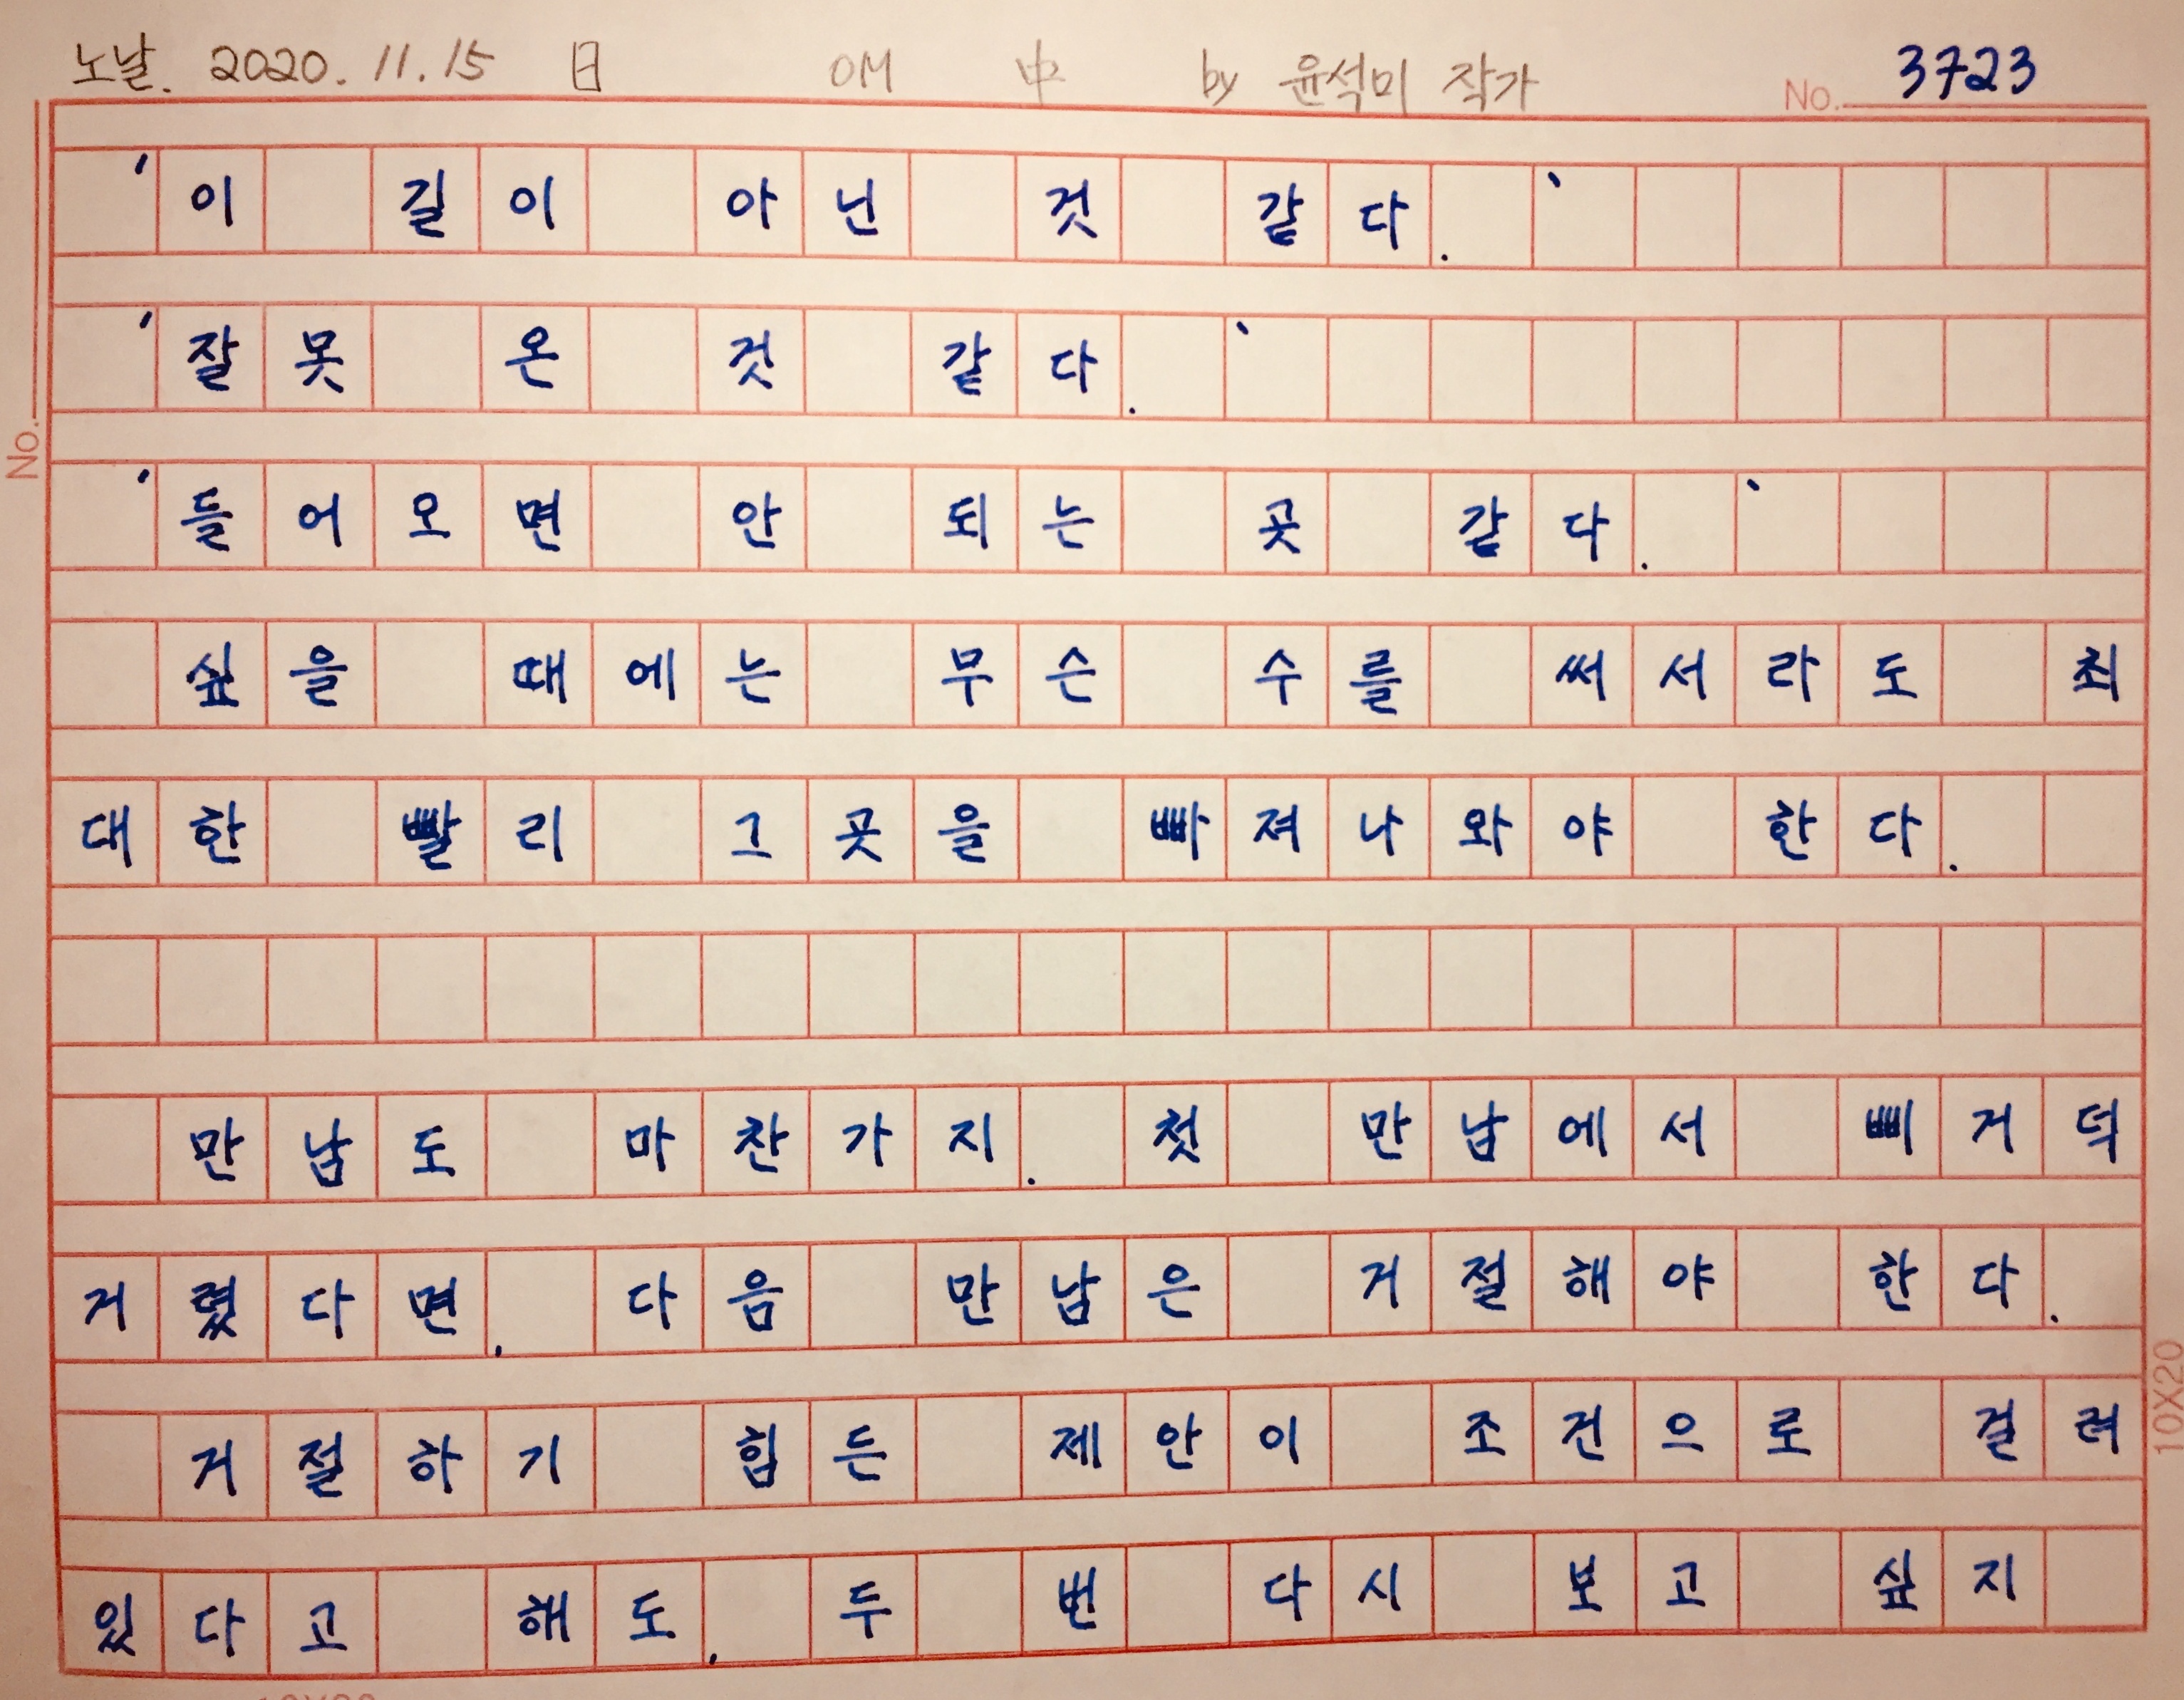 노날. 2020. 11. 15 日 OM 中 by 윤석미 작가 No. 3723
'이 길이 아닌 것 같다.'
'잘못 온 것 같다.'
'들어오면 안 되는 곳 같다.'
싶을 때에는 무슨 수를 써서라도 최
대한 빨리 그 곳을 빠져나와야 한다.
만남도 마찬가지. 첫 만남에서 삐거덕
거렸다면, 다음 만남은 거절해야 한다.
거절하기 힘든 제안이 조건으로 걸려
있다고 해도, 두 번 다시 보고 싶지
No.
10X20